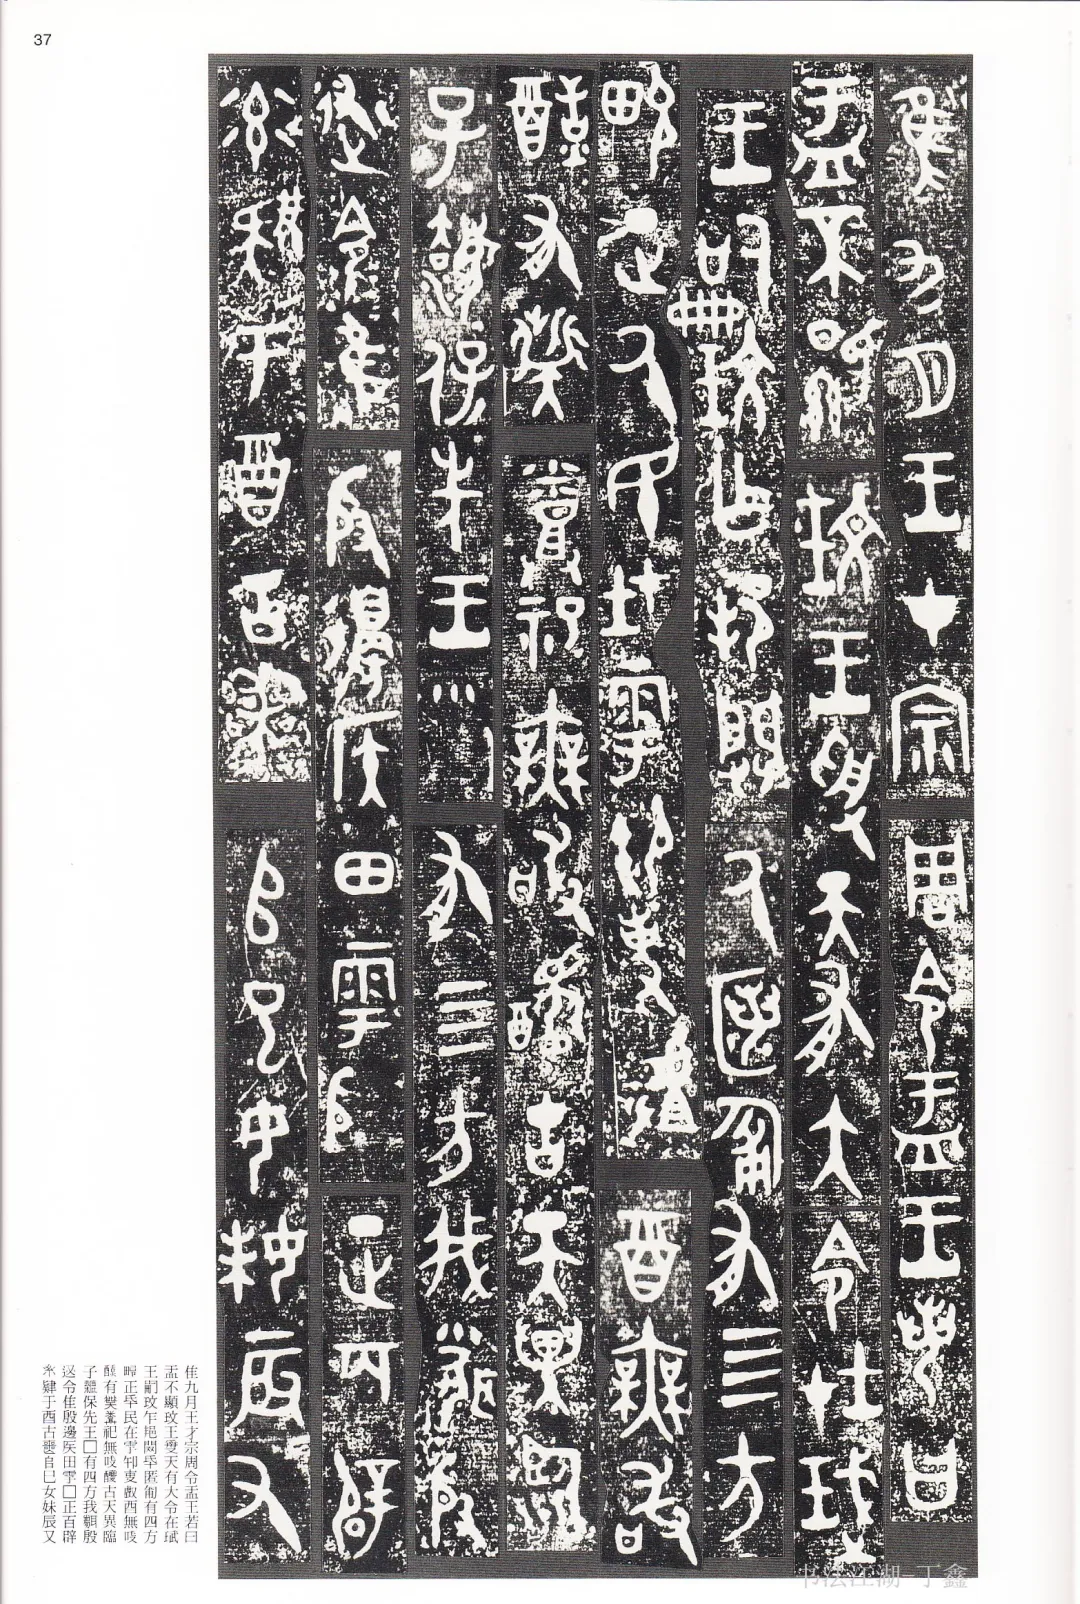 37
隹九月王才宗周令盂王若曰
盂不顯玟王受天有大令在珷
王嗣玟乍邦闢厥匿匍有四方
畯正厥民在雩御事酉無
有祀無古天異臨
子保先王□有四方我殷
令隹殷邊田雩□正百辟
率肄于酉古自已女妹辰又
书法江湖-丁鑫